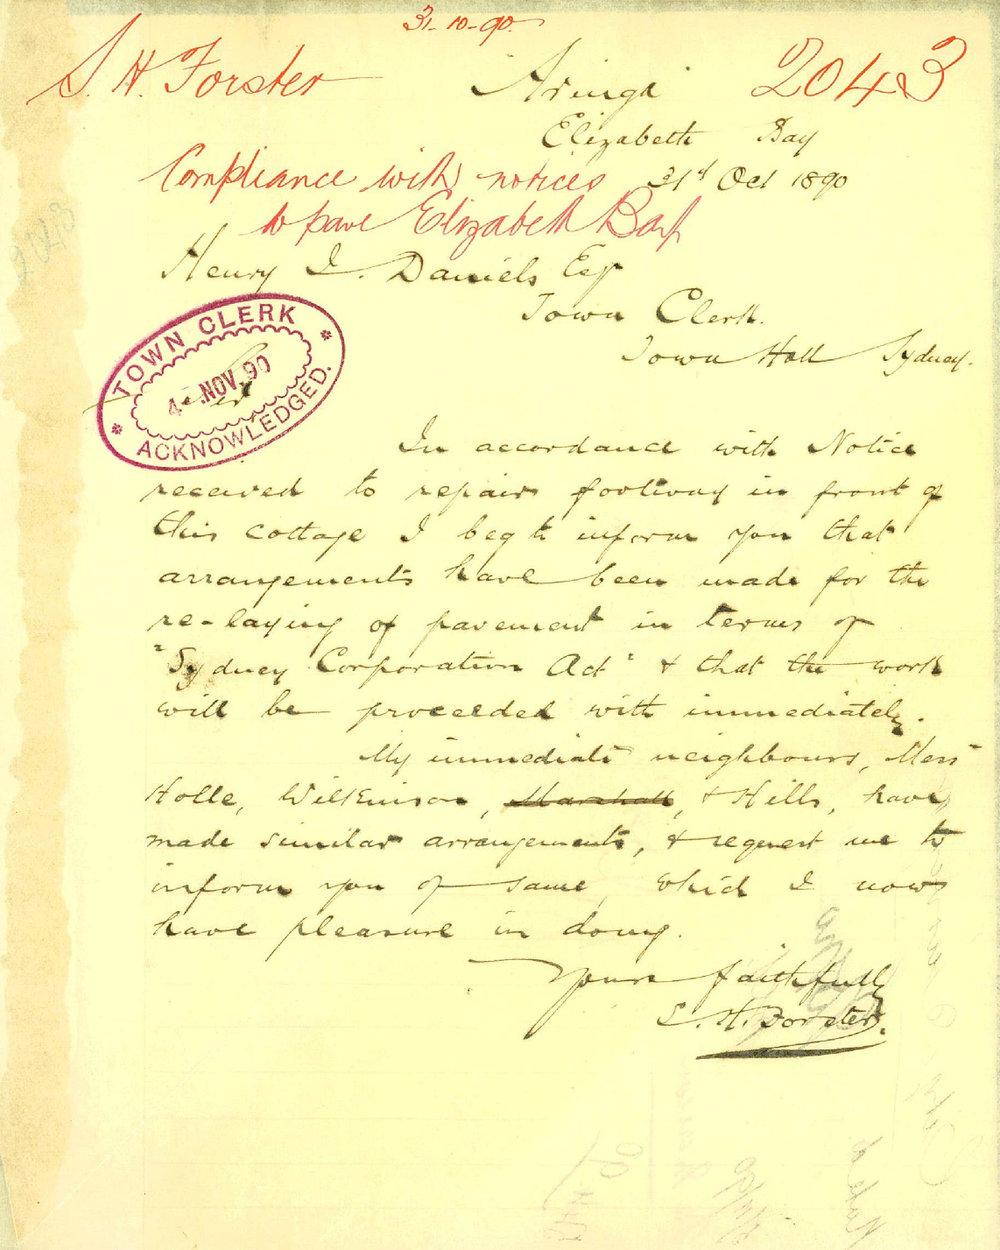 31-10-90
S. H. Forster
2043
Aringa
Elizabeth Bay
31st Oct 1890
Compliance with notices
to pave Elizabeth Bay
Henry J. Daniels Esq
Town Clerk.
Town Hall Sydney.
TOWN CLERK
4 - NOV. 90
ACKNOWLEDGED.
Sir
In accordance with Notice
received to repair footway in front of
this cottage I beg to inform you that
arrangements have been made for the
re-laying of pavement in terms of
"Sydney Corporation Act" & that the work
will be proceeded with immediately.
My immediate neighbours, Messrs
Holle, Wilkinson, Marshall, & Hills, have
made similar arrangements, & request me to
inform you of same, which I now
have pleasure in doing.
Yours faithfully
S. H. Forster.
2043